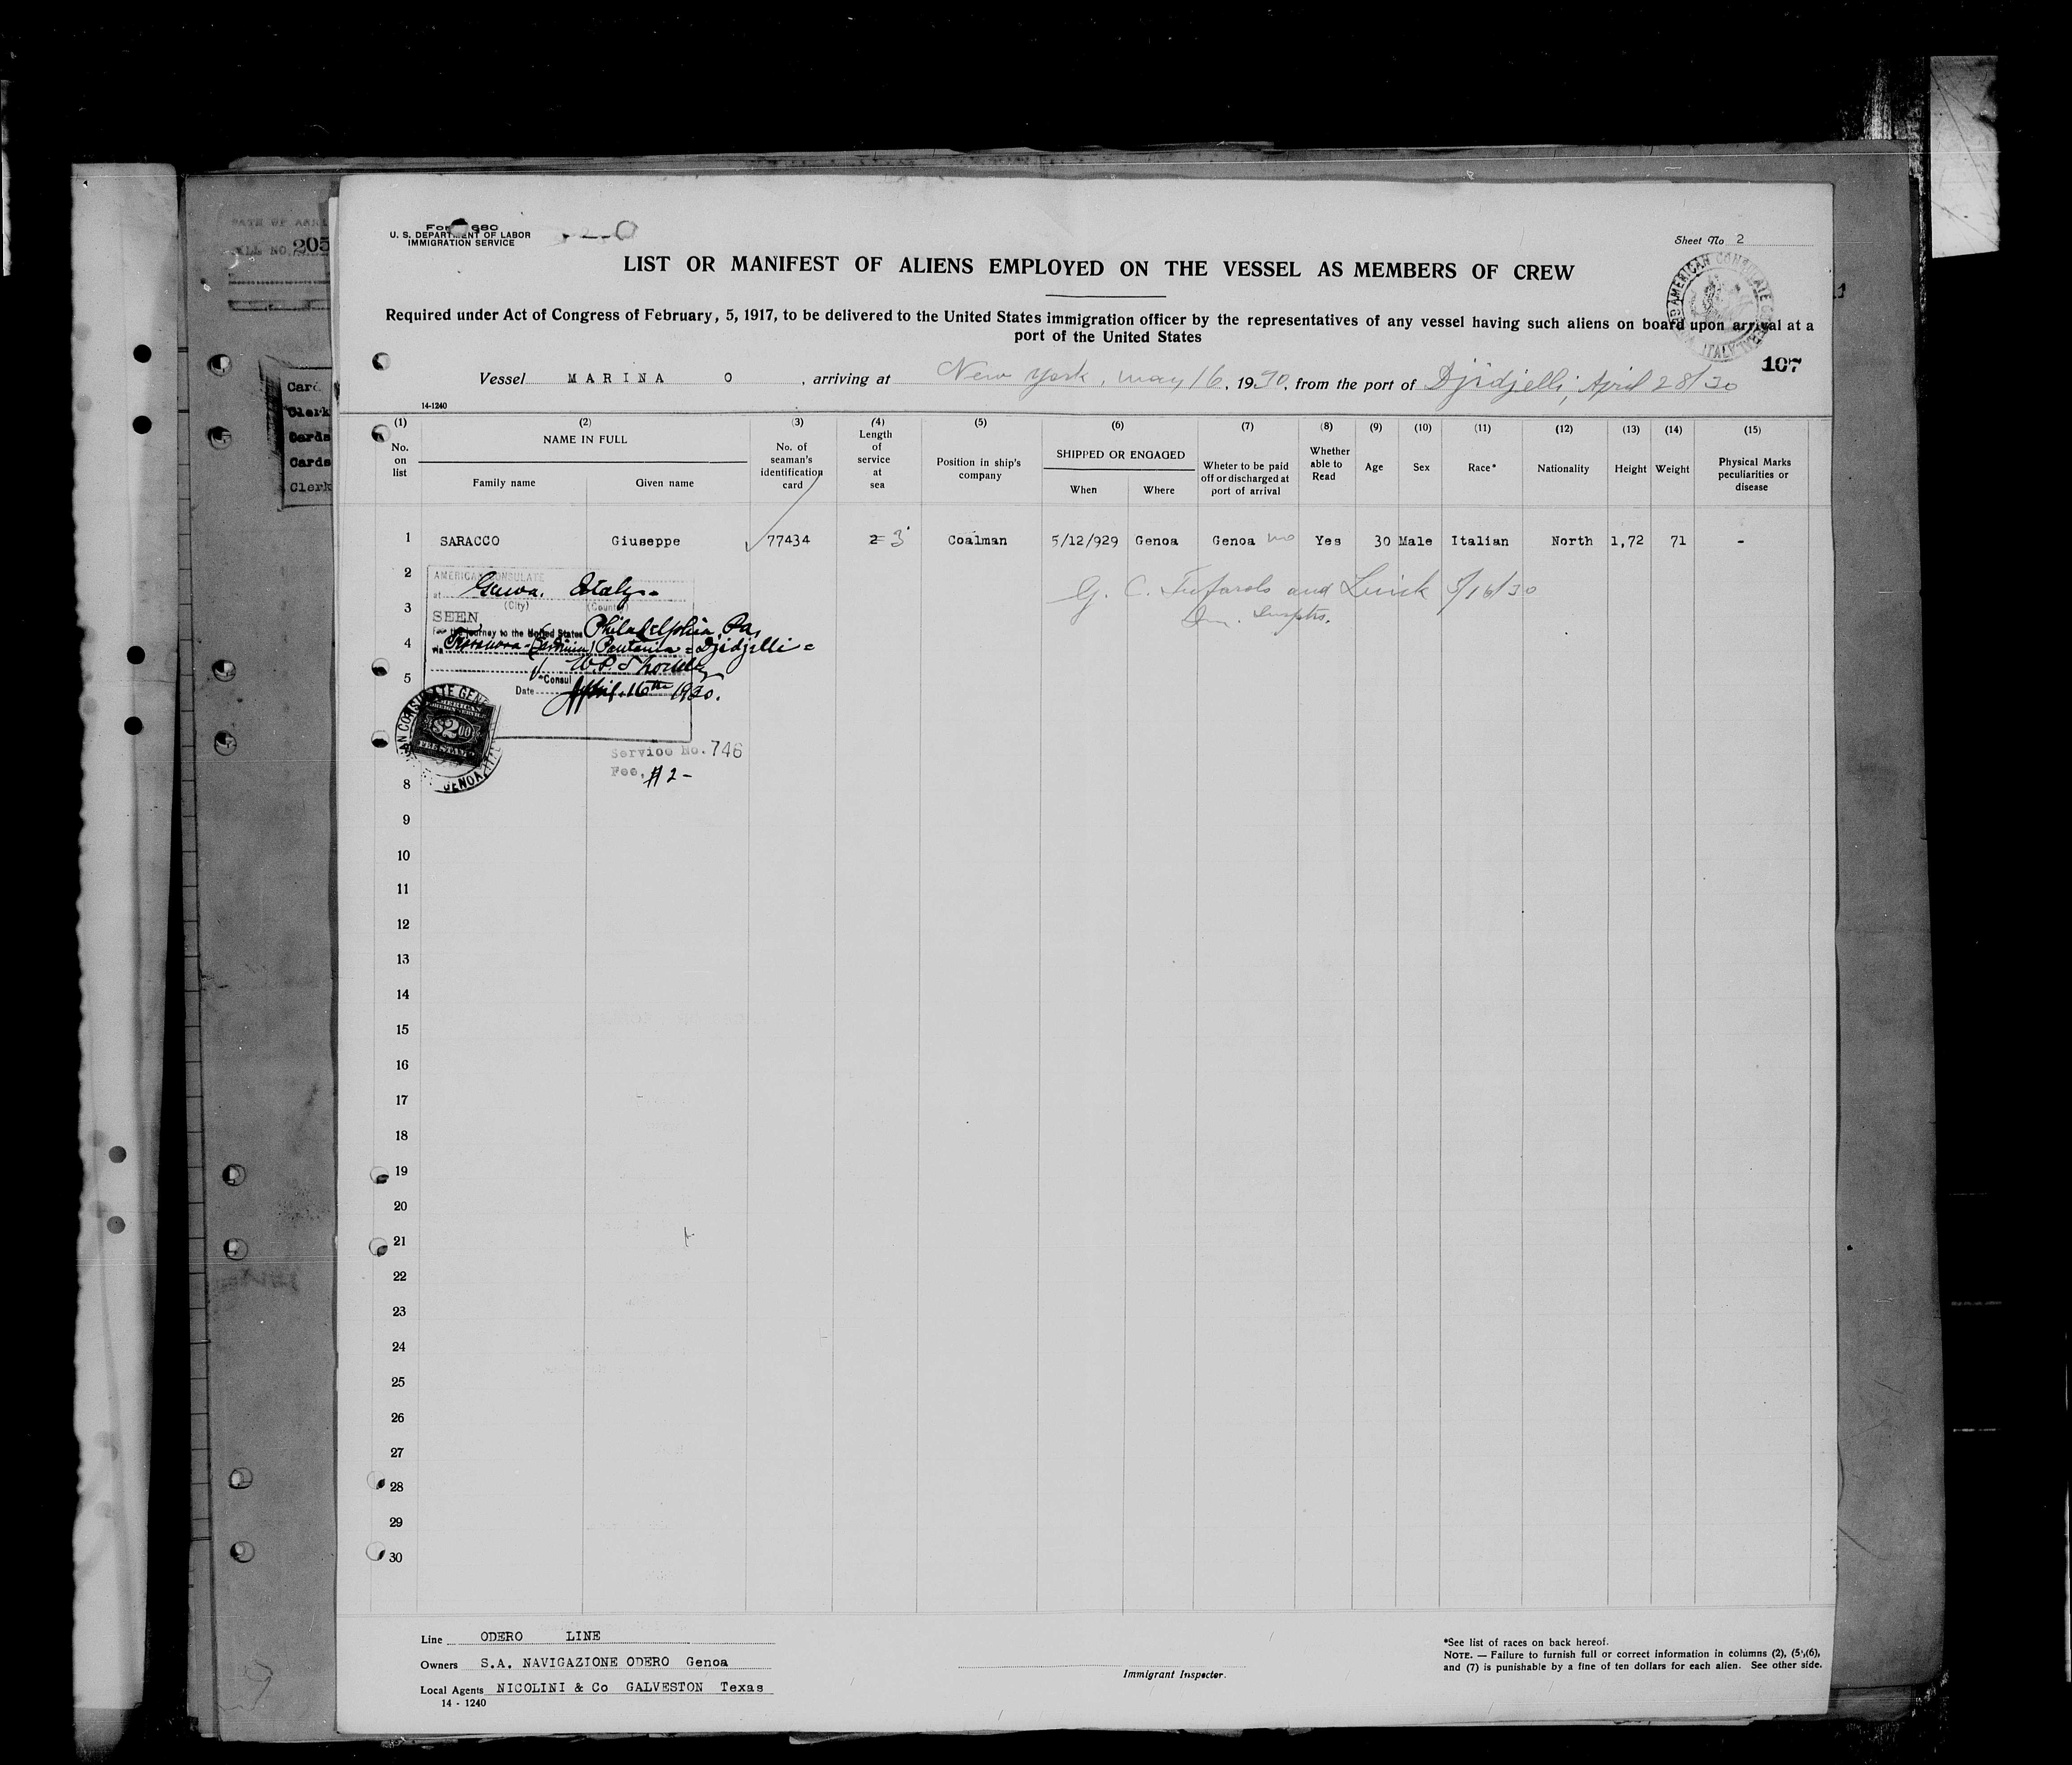 Form 680
U. S. DEPARTMENT OF LABOR
IMMIGRATION SERVICE
Sheet No 2
LIST OR MANIFEST OF ALIENS EMPLOYED ON THE VESSEL AS MEMBERS OF CREW
Required under Act of Congress of February, 5, 1917, to be delivered to the United States immigration officer by the representatives of any vessel having such aliens on board upon arrival at a
port of the United States
107
Vessel MARINA O, arriving at New York, May 16, 1930, from the port of Djidjelli, April 28/30
14-1240
(1) (2) (3) (4) (5) (6) (7) (8) (9) (10) (11) (12) (13) (14) (15)
No. on list
NAME IN FULL
Family name Given name
No. of seaman's identification card
Length of service at sea
Position in ship's company
SHIPPED OR ENGAGED
When Where
Wheter to be paid off or discharged at port of arrival
Whether able to Read
Age
Sex
Race*
Nationality
Height
Weight
Physical Marks peculiarities or disease
1 SARACCO Giuseppe 77434 2 3 Coalman 5/12/929 Genoa Genoa no Yes 30 Male Italian North 1,72 71 -
G. C. and 5/16/30
Im. Insptrs.
2
3
4
5
8
9
10
11
12
13
14
15
16
17
18
19
20
21
22
23
24
25
26
27
28
29
30
AMERICAN CONSULATE
at Genoa, Italy.
(City) (Country)
SEEN
For the journey to the United States Philadelphia, Pa,
via Djidjelli
Consul
Date April 16th 1930.
AMERICAN
FOREIGN SERVICE
$2.00
FEE STAMP
Service No. 746
Fee, $2-
Line ODERO LINE
Owners S.A. NAVIGAZIONE ODERO Genoa
Local Agents NICOLINI & Co GALVESTON Texas
14 - 1240
Immigrant Inspector.
*See list of races on back hereof.
NOTE. — Failure to furnish full or correct information in columns (2), (5), (6),
and (7) is punishable by a fine of ten dollars for each alien. See other side.
205
Clerk
Cards
Cards
Clerk